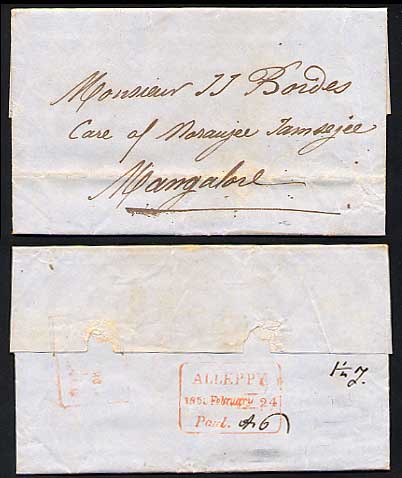 Monsieur JJ Bordes
Care of Noraujee Jamsejee
Mangalore
ALLEPPY
185 February 24
Paid. A6